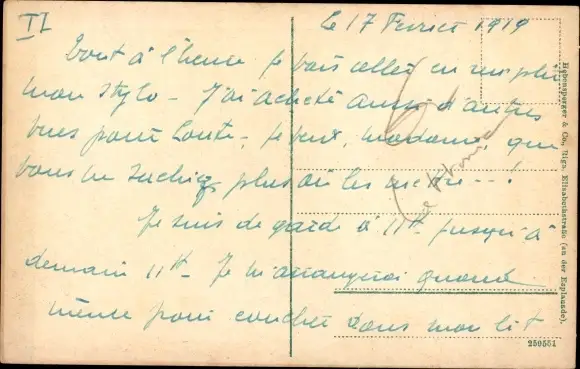 II
Le 17 Fevrier 1919
Tout à l'heure je vais aller en
mon stylo - J'ai acheté aussi d'autres
vues pour toute, je veux, madame, que
vous ne sachiez plus où les mettre --!
Je suis de garde à 11h jusqu'à
demain 11h - Je m'arrangerai quand
même pour coucher dans mon lit
Hebensperger & Co., Riga, Elisabethstraße (an der Esplanade).
259551